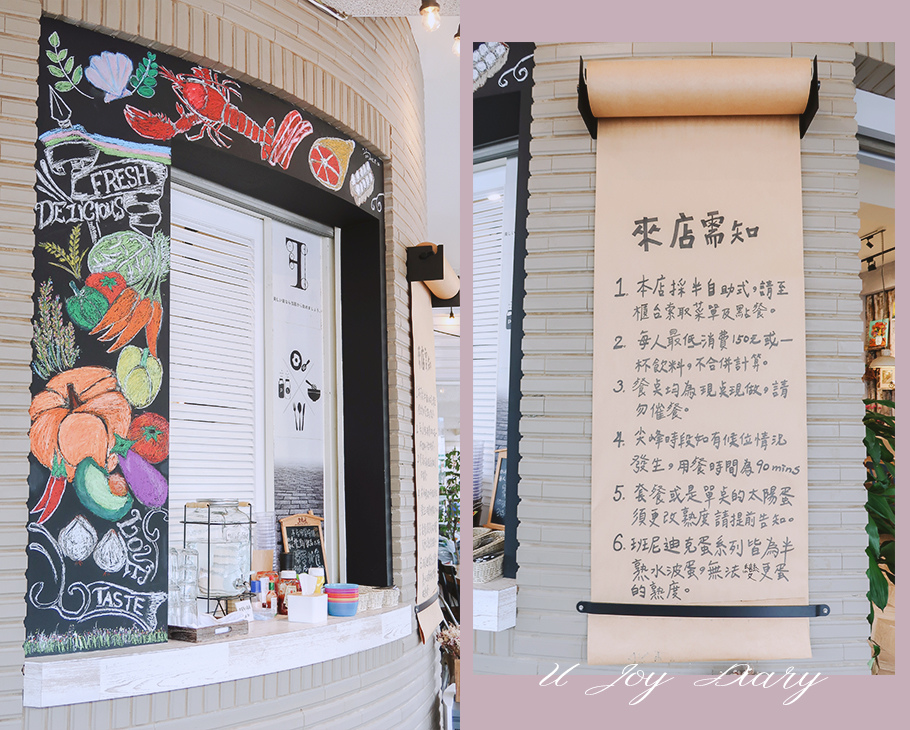 FRESH
DELICIOUS
TASTE
來店需知
1. 本店採半自助式，請至
櫃台索取菜單及點餐。
2. 每人最低消費150元或一
杯飲料，不合併計算。
3. 餐桌均為現桌現做，請
勿催餐。
4. 尖峰時段如有候位情況
發生，用餐時間為90mins
5. 套餐或是單桌的太陽蛋
須更改熟度請提前告知。
6. 班尼迪克蛋系列皆為半
熟水波蛋，無法變更蛋
的熟度。
U Joy Diary